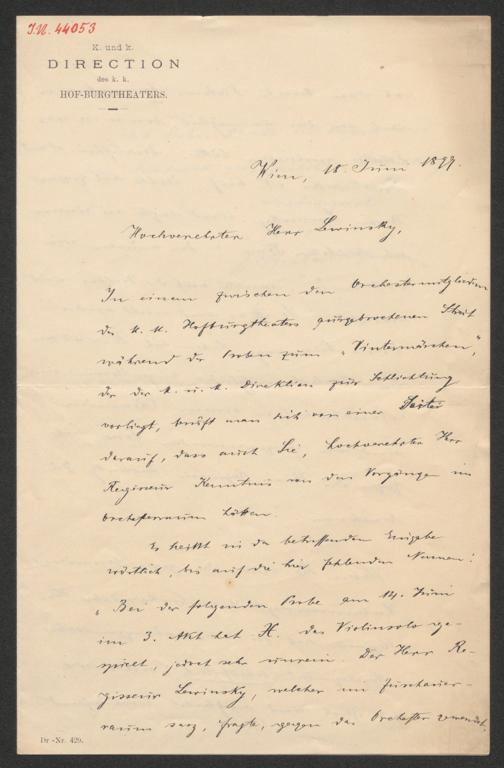 I.N. 44053
K. und k.
DIRECTION
des k. k.
HOF-BURGTHEATERS.
Wien, 18. Juni 1899.
Hochverehrter Herr Lewinsky,
In einem zwischen den Orchestermitgliedern
des k. k. Hofburgtheaters ausgebrochenen Streit
während der Proben zum „Wintermärchen“,
der der k. u. k. Direktion zur Schlichtung
vorliegt, beruft man sich von einer Seite
darauf, dass auch Sie, hochverehrter Herr
Regisseur Kenntnis von den Vorgängen im
Orchesterraum hätten.
Es heißt in der betreffenden Eingabe
wörtlich, bis auf die hier fehlenden Namen:
„Bei der folgenden Probe am 14. Juni
im 3. Akt hat H. das Violinsolo ge-
spielt, jedoch sehr unrein. Der Herr Re-
gisseur Lewinsky, welcher im Zuschauer-
raum sass, fragte, gegen das Orchester gewendet,
Dr.-Nr. 429.